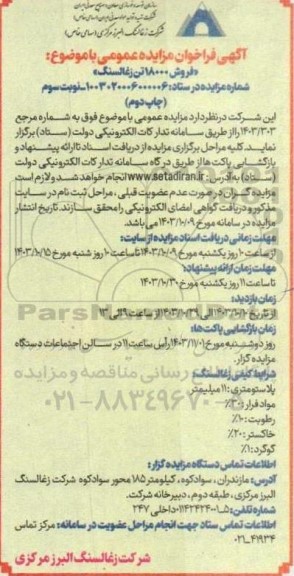 شرکت زغالسنگ البرز مرکزی (سهامی خاص)
آگهی فراخوان مزایده عمومی با موضوع:
«فروش ۱۸۰۰۰ تن زغالسنگ»
شماره مزایده در ستاد: ۱۰۰۳۰۲۰۰۰۶۰۰۰۰۰۶_نوبت سوم
(چاپ دوم)
این شرکت در نظر دارد مزایده عمومی با موضوع فوق به شماره مرجع
۱۴۰۳/۳۰۳ را از طریق سامانه تدارکات الکترونیکی دولت (ستاد) برگزار
نماید. کلیه مراحل برگزاری مزایده از دریافت اسناد تا ارائه پیشنهاد و
بازگشایی پاکت ها از طریق درگاه سامانه تدارکات الکترونیکی دولت
(ستاد) به آدرس: www.setadiran.ir انجام خواهد شد و لازم است
مزایده گران در صورت عدم عضویت قبلی، مراحل ثبت نام در سایت
مذکور و دریافت گواهی امضای الکترونیکی را محقق سازند. تاریخ انتشار
مزایده در سامانه مورخ ۱۴۰۳/۱۰/۰۹ می باشد.
مهلت زمانی دریافت اسناد مزایده از سایت:
از ساعت ۱۰ روز یکشنبه مورخ ۱۴۰۳/۱۰/۰۹ تا ساعت ۱۰ روز شنبه مورخ ۱۴۰۳/۱۰/۱۵
مهلت زمان ارائه پیشنهاد:
تا ساعت ۱۱ روز یکشنبه مورخ ۱۴۰۳/۱۰/۳۰
زمان بازدید:
از تاریخ ۱۴۰۳/۱۰/۱۰ الی ۱۴۰۳/۱۰/۲۹ از ساعت ۹ الی ۱۳
زمان بازگشایی پاکت ها:
روز دوشنبه مورخ ۱۴۰۳/۱۱/۰۱ رأس ساعت ۱۱ در سالن اجتماعات دستگاه
مزایده گزار.
شرایط کیفی زغالسنگ:
پلاستومتری: ۱۱ میلیمتر
مواد فرار: ۳۰٪
رطوبت: ۱۰٪
خاکستر: ۲۰٪
گوگرد: ۱٪
اطلاعات تماس دستگاه مزایده گزار:
آدرس: مازندران، سوادکوه، کیلومتر ۱۸۵ محور سوادکوه شرکت زغالسنگ
البرز مرکزی، طبقه دوم، دبیرخانه شرکت.
شماره تلفن: ۵_۰۱۱۴۲۴۲۴۰۰۱ داخلی ۲۴۷
اطلاعات تماس ستاد جهت انجام مراحل عضویت در سامانه: مرکز تماس
۰۲۱_۴۱۹۳۴
شرکت زغالسنگ البرز مرکزی